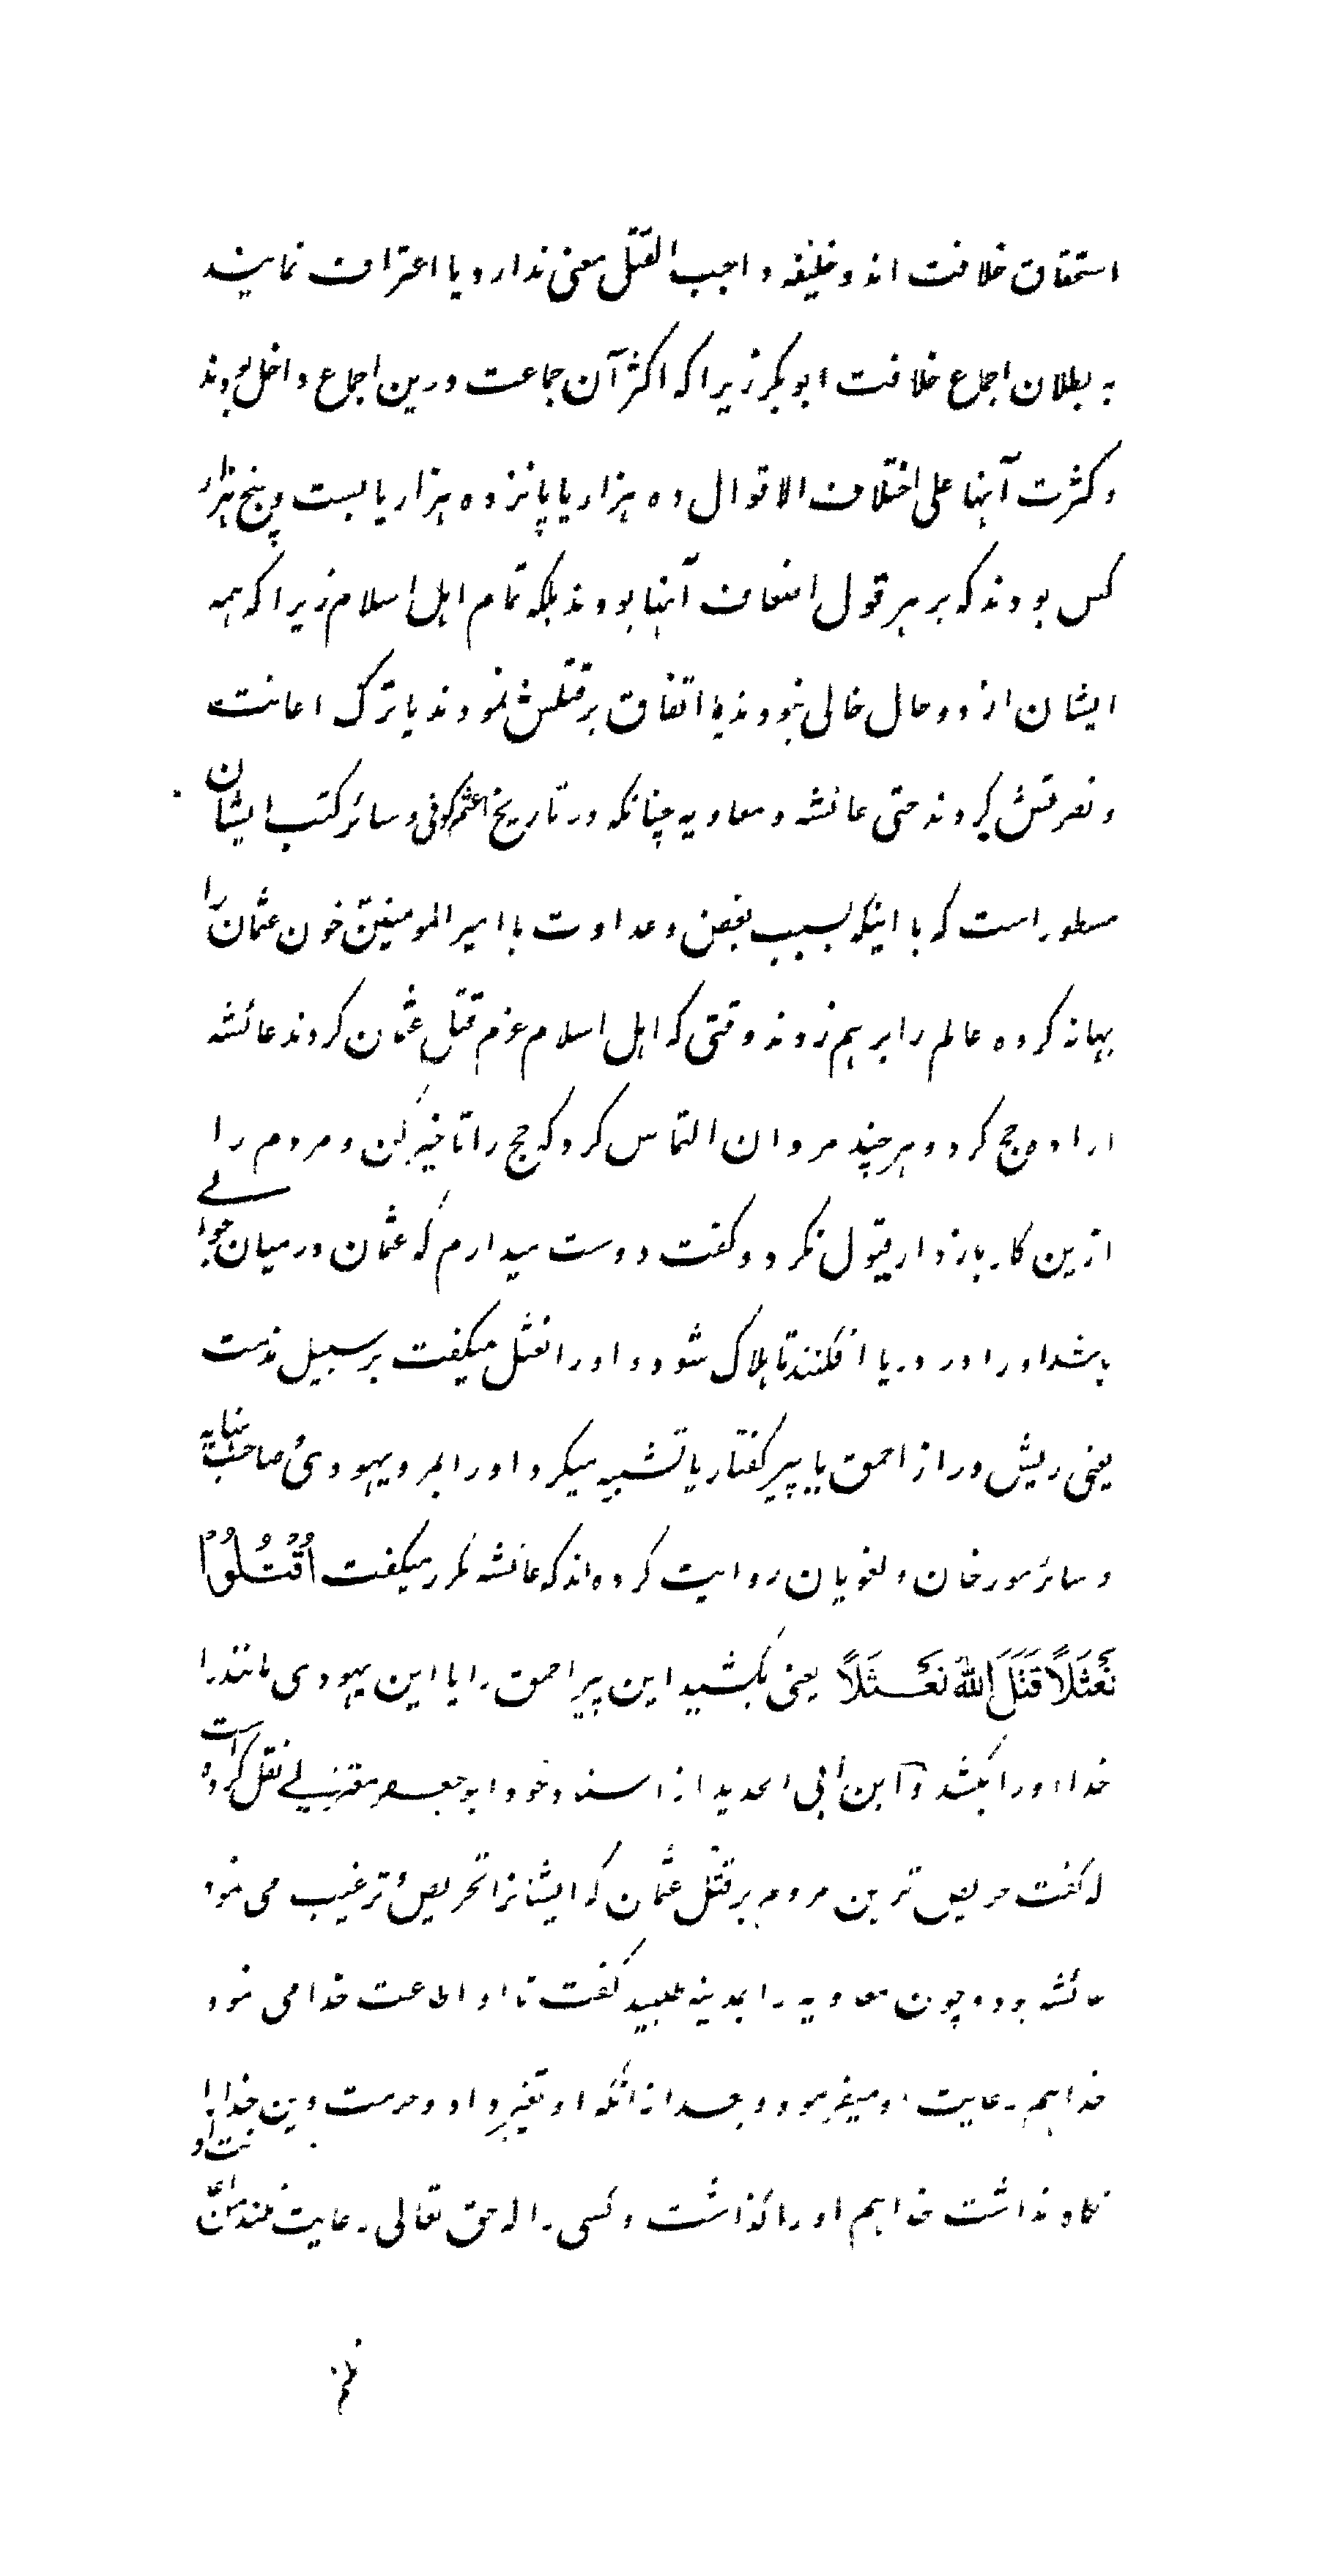 استحقاق خلافت اند و خلیفه واجب القتل معنی ندارد و یا اعتراف نمایند
به بطلان اجماع خلافت ابوبکر زیرا که اکثر آن جماعت درین اجماع داخل بودند
و کثرت آنها علی اختلاف الاقوال ده هزار یا پانزده هزار یا بست و پنج هزار
کس بودند که بر هر قول اضعاف آنها بودند بلکه تمام اهل اسلام زیرا که همه
ایشان از دو حال خالی نبودند یا اتفاق بر قتلش نمودند یا ترک اعانت
و نصرتش کردند حتی عائشه و معاویه چنانکه در تاریخ اعثم کوفی و سائر کتب ایشان
مسطور است که با اینکه بسبب بغض و عداوت با امیر المومنین خون عثمان را
بهانه کرده عالم را بر هم زدند وقتی که اهل اسلام عزم قتل عثمان کردند عائشه
اراده حج کرد و هر چند مروان التماس کرد که حج را تاخیر کن و مردم را
ازین کار باز دار قبول نکرد و گفت دوست میدارم که عثمان در میان جوالے
باشد او را در دریا افکنند تا هلاک شود و او را نعثل میگفت بر سبیل مذمت
یعنی ریش دراز احمق یا پیر کفتار یا تشبیه میکرد او را بمرد یهودی صاحب نهایه
و سائر مورخان و لغویان روایت کرده اند که عائشه مکرر میگفت اُقْتُلُوْا
نَعْثَلًا قَتَلَ اللهُ نَعْثَلًا یعنی بکشید این پیر احمق را یا این یهودی مانند را
خدا او را بکشد و ابن ابی الحدید از استاد خود ابو جعفر معتزلے نقل کرده است
که گفت حریص ترین مردم بر قتل عثمان که ایشانرا تحریص و ترغیب می نمود
عائشه بود و چون معاویه را بمدینه طلبید گفت تا او اطاعت خدا می نمود
خدا هم رعایت او میفرمود و بعد از آنکه او تغیر داد و حرمت دین خدا را
نگاه نداشت خدا هم او را گذاشت و کسی را که حق تعالی رعایت نکند